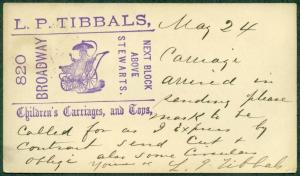 L. P. TIBBALS,
820
BROADWAY
NEXT BLOCK
ABOVE
STEWARTS.
Children's Carriages, and Toys,
May 24
Carriage
arrived in
sending please
mark to be
Called for as I Express by
contract send Cut &
oblige also some Circulars
Yours &c L. P. Tibbals